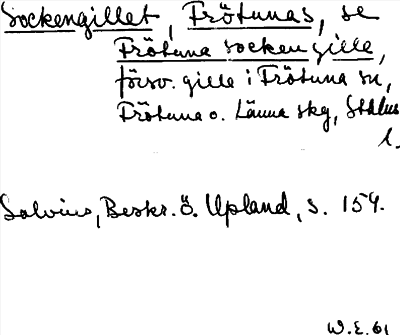 Sockengillet, Frötunas, se
Frötuna sockengille,
försv. gille i Frötuna sn,
Frötuna o. Länna skg, Sthlms
l.
Salvius, Beskr. Ö. Upland, s. 159.
W.E. 61